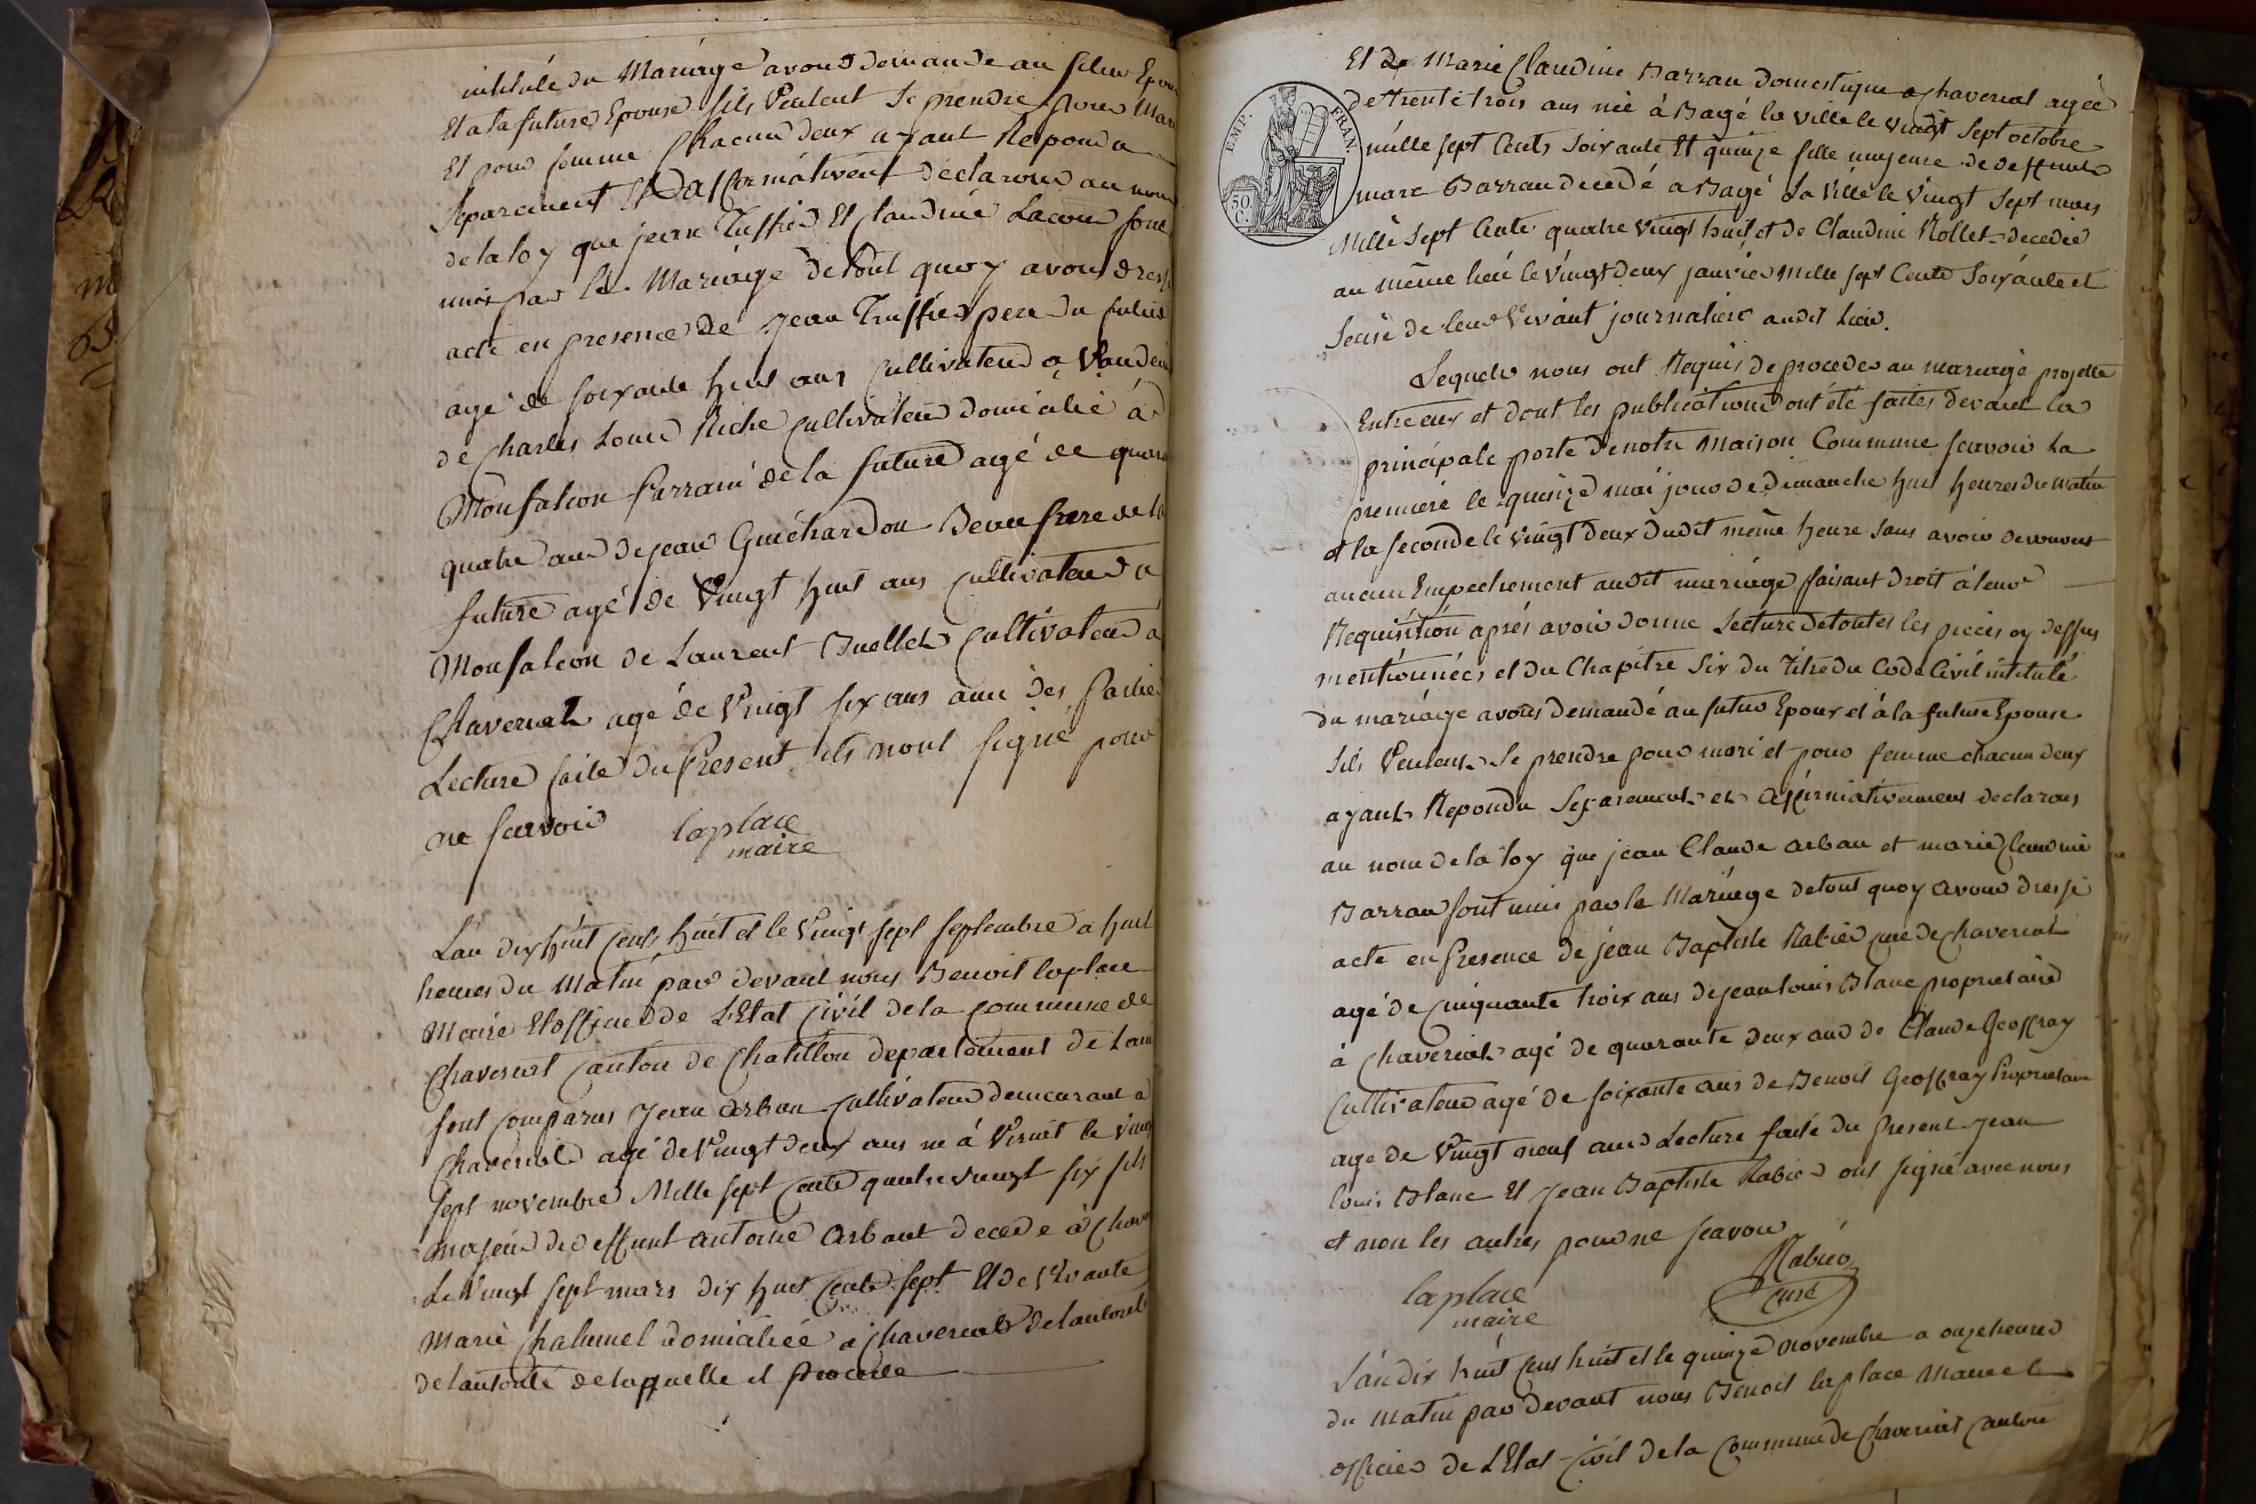 intitulé du Mariage avons demande au futur Epou
Et a la future Epouse sils Veulent Se prendre pour Mari
Et pour femme Chacun deux ayant Repondu
Separement Et affirmativement déclarons au nom
de la loy que jean Truffier Et Claudine Lacour sont
unis par le Mariage de tout quoy avons dressé
acte en presence de Jean Truffier pere du futur
agé de soixante huit ans Cultivateur a Vandein
de Charles Louis Riche Cultivateur domicilié à
Monfalcon Parrain de la future agé de quara
quatre ans de jean Guichardon Beau frere de la
future agé de Vingt huit ans Cultivateur a
Monfalcon de Laurent Buellet Cultivateur a
Chaveriat agé de Vingt six ans ami des Parties
Lecture faite du Present ils nont signé pour
ne scavoir laplace
maire
Lan dix huit Cents huit et le Vingt sept septembre a huit
heures du Matin par devant nous Benoit laplace
Maire Et officier de L'Etat Civil de la Commune de
Chaveriat Canton de Chatillon departement de Lain
sont Comparus Jean Arban Cultivateur demeurant a
Chaveriat agé de Vingt deux ans né á Virriat le Ving
sept novembre Mille sept Cents quatre vingt six fils
majeur de deffunt antoine Arbant décédé à Chave
Le Vingt sept mars dix huit Cents sept Et de Vivante
Marie Chalumel domiciliée a Chaveriat de lautorité
de lautorité de laquelle il procede
EMP. FRAN.
50 C.
Et de Marie Claudine Barrau domestique a Chaveriat agée
de trente trois ans née à Bagé la Ville le vingt sept octobre
mille sept Cents soixante Et quinze fille majeure de deffunts
marc Barrau décedé a Bagé La Ville le Vingt sept mars
Mille sept Cents quatre vingt huit et de Claudine Rollet decedée
au même lieu le Vingt deux janvier Mille sept Cents soixante et
seise de leur Vivant journaliers audit Lieu.
Lequels nous ont Requis de proceder au mariage projetté
Entre eux et dont les publications ont été faites devant la
principale porte de notre Maison Commune scavoir La
premiere le quinze mai jour de dimanche huit heures du matin
et la seconde le vingt deux dudit même heure sans avoir decouvert
aucun Empechement audit mariage faisant droit á leur
Requisition aprés avoir donné Lecture de toutes les pieces cy dessus
mentionnées et du Chapitre Six du titre du Code Civil intitulé
du mariage avons demandé au futur Epoux et á la future Epouse
sils Veulent Se prendre pour mari et pour femme chacun deux
ayant Repondu Separement et affirmativement declarons
au nom de la loy que jean Claude arban et marie Claudine
Barrau sont unis par le Mariage de tout quoy avons dressé
acte en Presence de jean Baptiste Rabier Curé de Chaveriat
agé de Cinquante troix ans de jean louis Blanc proprietaire
à Chaveriat agé de quarante deux ans de Claude Geoffray
Cultivateur agé de soixante ans de Benoit Geoffray Proprietaire
age de Vingt neuf ans Lecture faite du Present Jean
louis Blanc Et Jean Baptiste Rabier ont signé avec nous
et non les autres pour ne scavoir
Rabier
laplace curé
maire
L'an dix huit Cens huit et le quinze novembre a onze heures
du Matin par devant nous Benoit laplace Maire et
officier de L'Etat Civil de la Commune de Chaveriat Canton